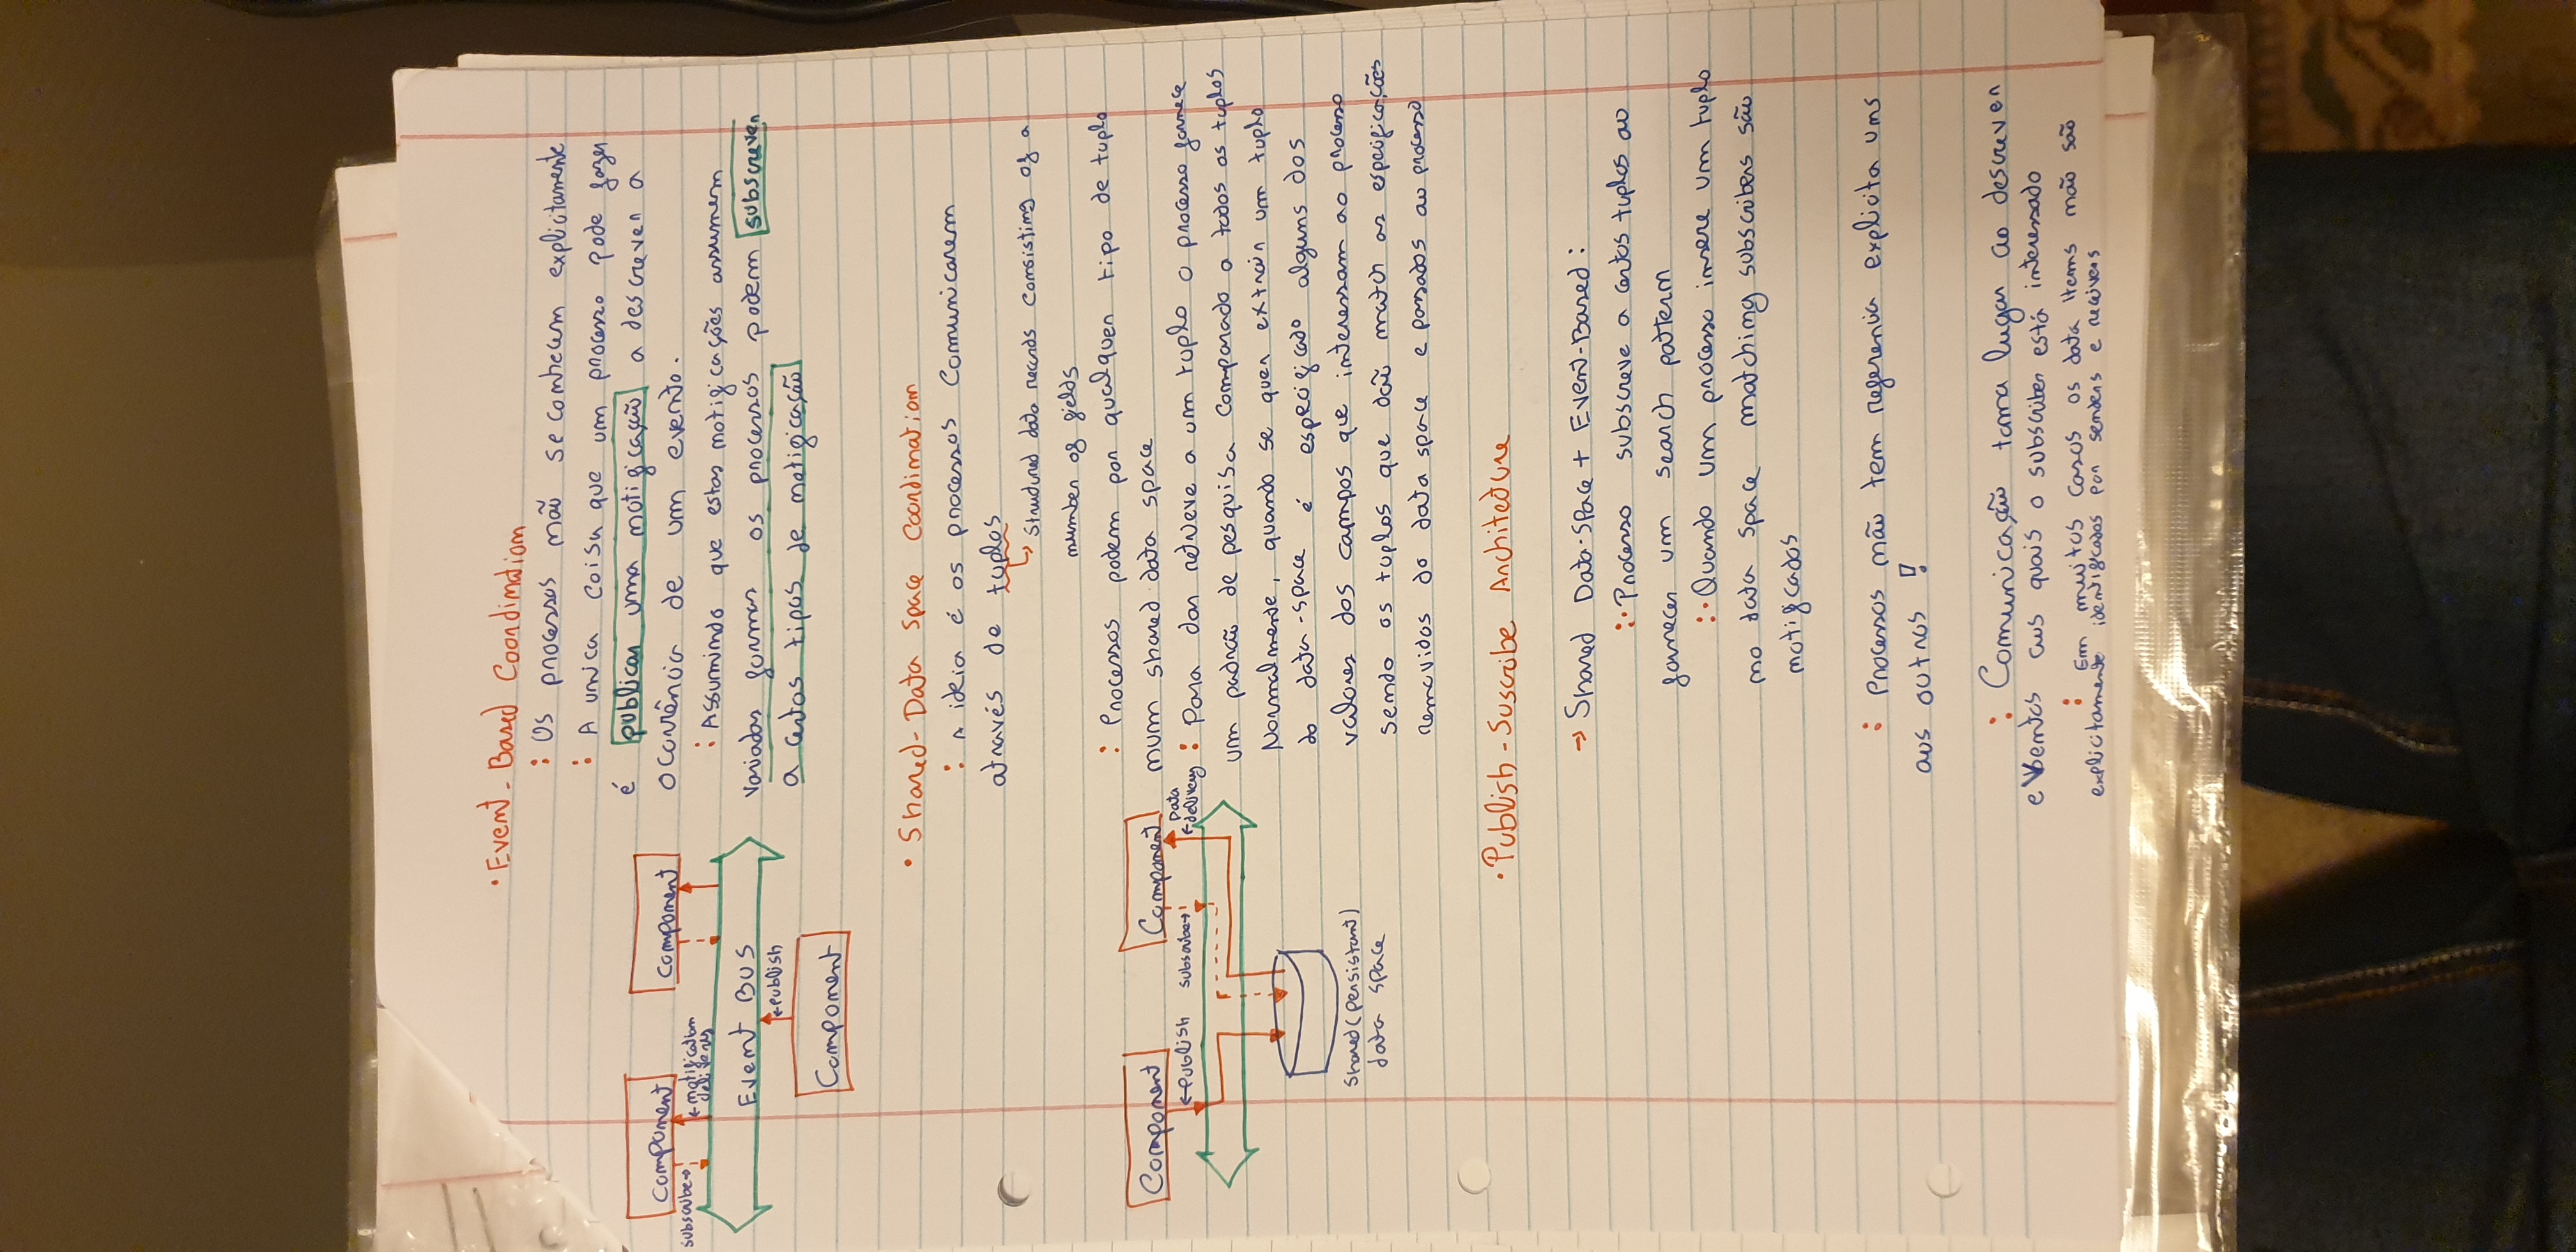 • Event-Based Coordination
: Os processos não se conhecem explicitamente
: A unica coisa que um processo pode fazer
é publicar uma notificação a descrever a
ocorrência de um evento.
: Assumindo que estas notificações assumem
variadas formas os processos podem subscrever
a certos tipos de notificação
Component
Component
subscribe→
←notification
delivery
Event BUS
←Publish
Component
• Shared-Data Space Coordination
: A ideia é os processos comunicarem
através de tuplos
↳ Structured data records consisting of a
number of fields
: Processos podem por qualquer tipo de tuplo
num shared data space
: Para dar retrieve a um tuplo o processo fornece
um padrão de pesquisa comparado a todos os tuplos
Normalmente, quando se quer extrair um tuplo
do data-space é especificado alguns dos
valores dos campos que interessam ao processo
sendo os tuplos que dão match as especificações
removidos do data space e passados ao processo
Component
Component
←Publish
subscribe→
Data
←delivery
Shared (persistant)
data space
• Publish-Suscribe Architecture
→ Shared Data-Space + Event-Based:
:• Processo subscreve a certos tuplos ao
fornecer um search pattern
:• Quando um processo insere um tuplo
no data space matching subscribers são
notificados
: Processos não tem referencia explicita uns
aos outros !
: Comunicação toma lugar ao descrever
eventos aus quais o subscriber está interessado
: Em muitos casos os data items não são
explicitamente identificados por senders e receivers